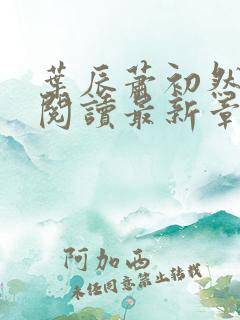 葉辰蕭初然
閱讀最新章
阿加西
未经同意禁止转载